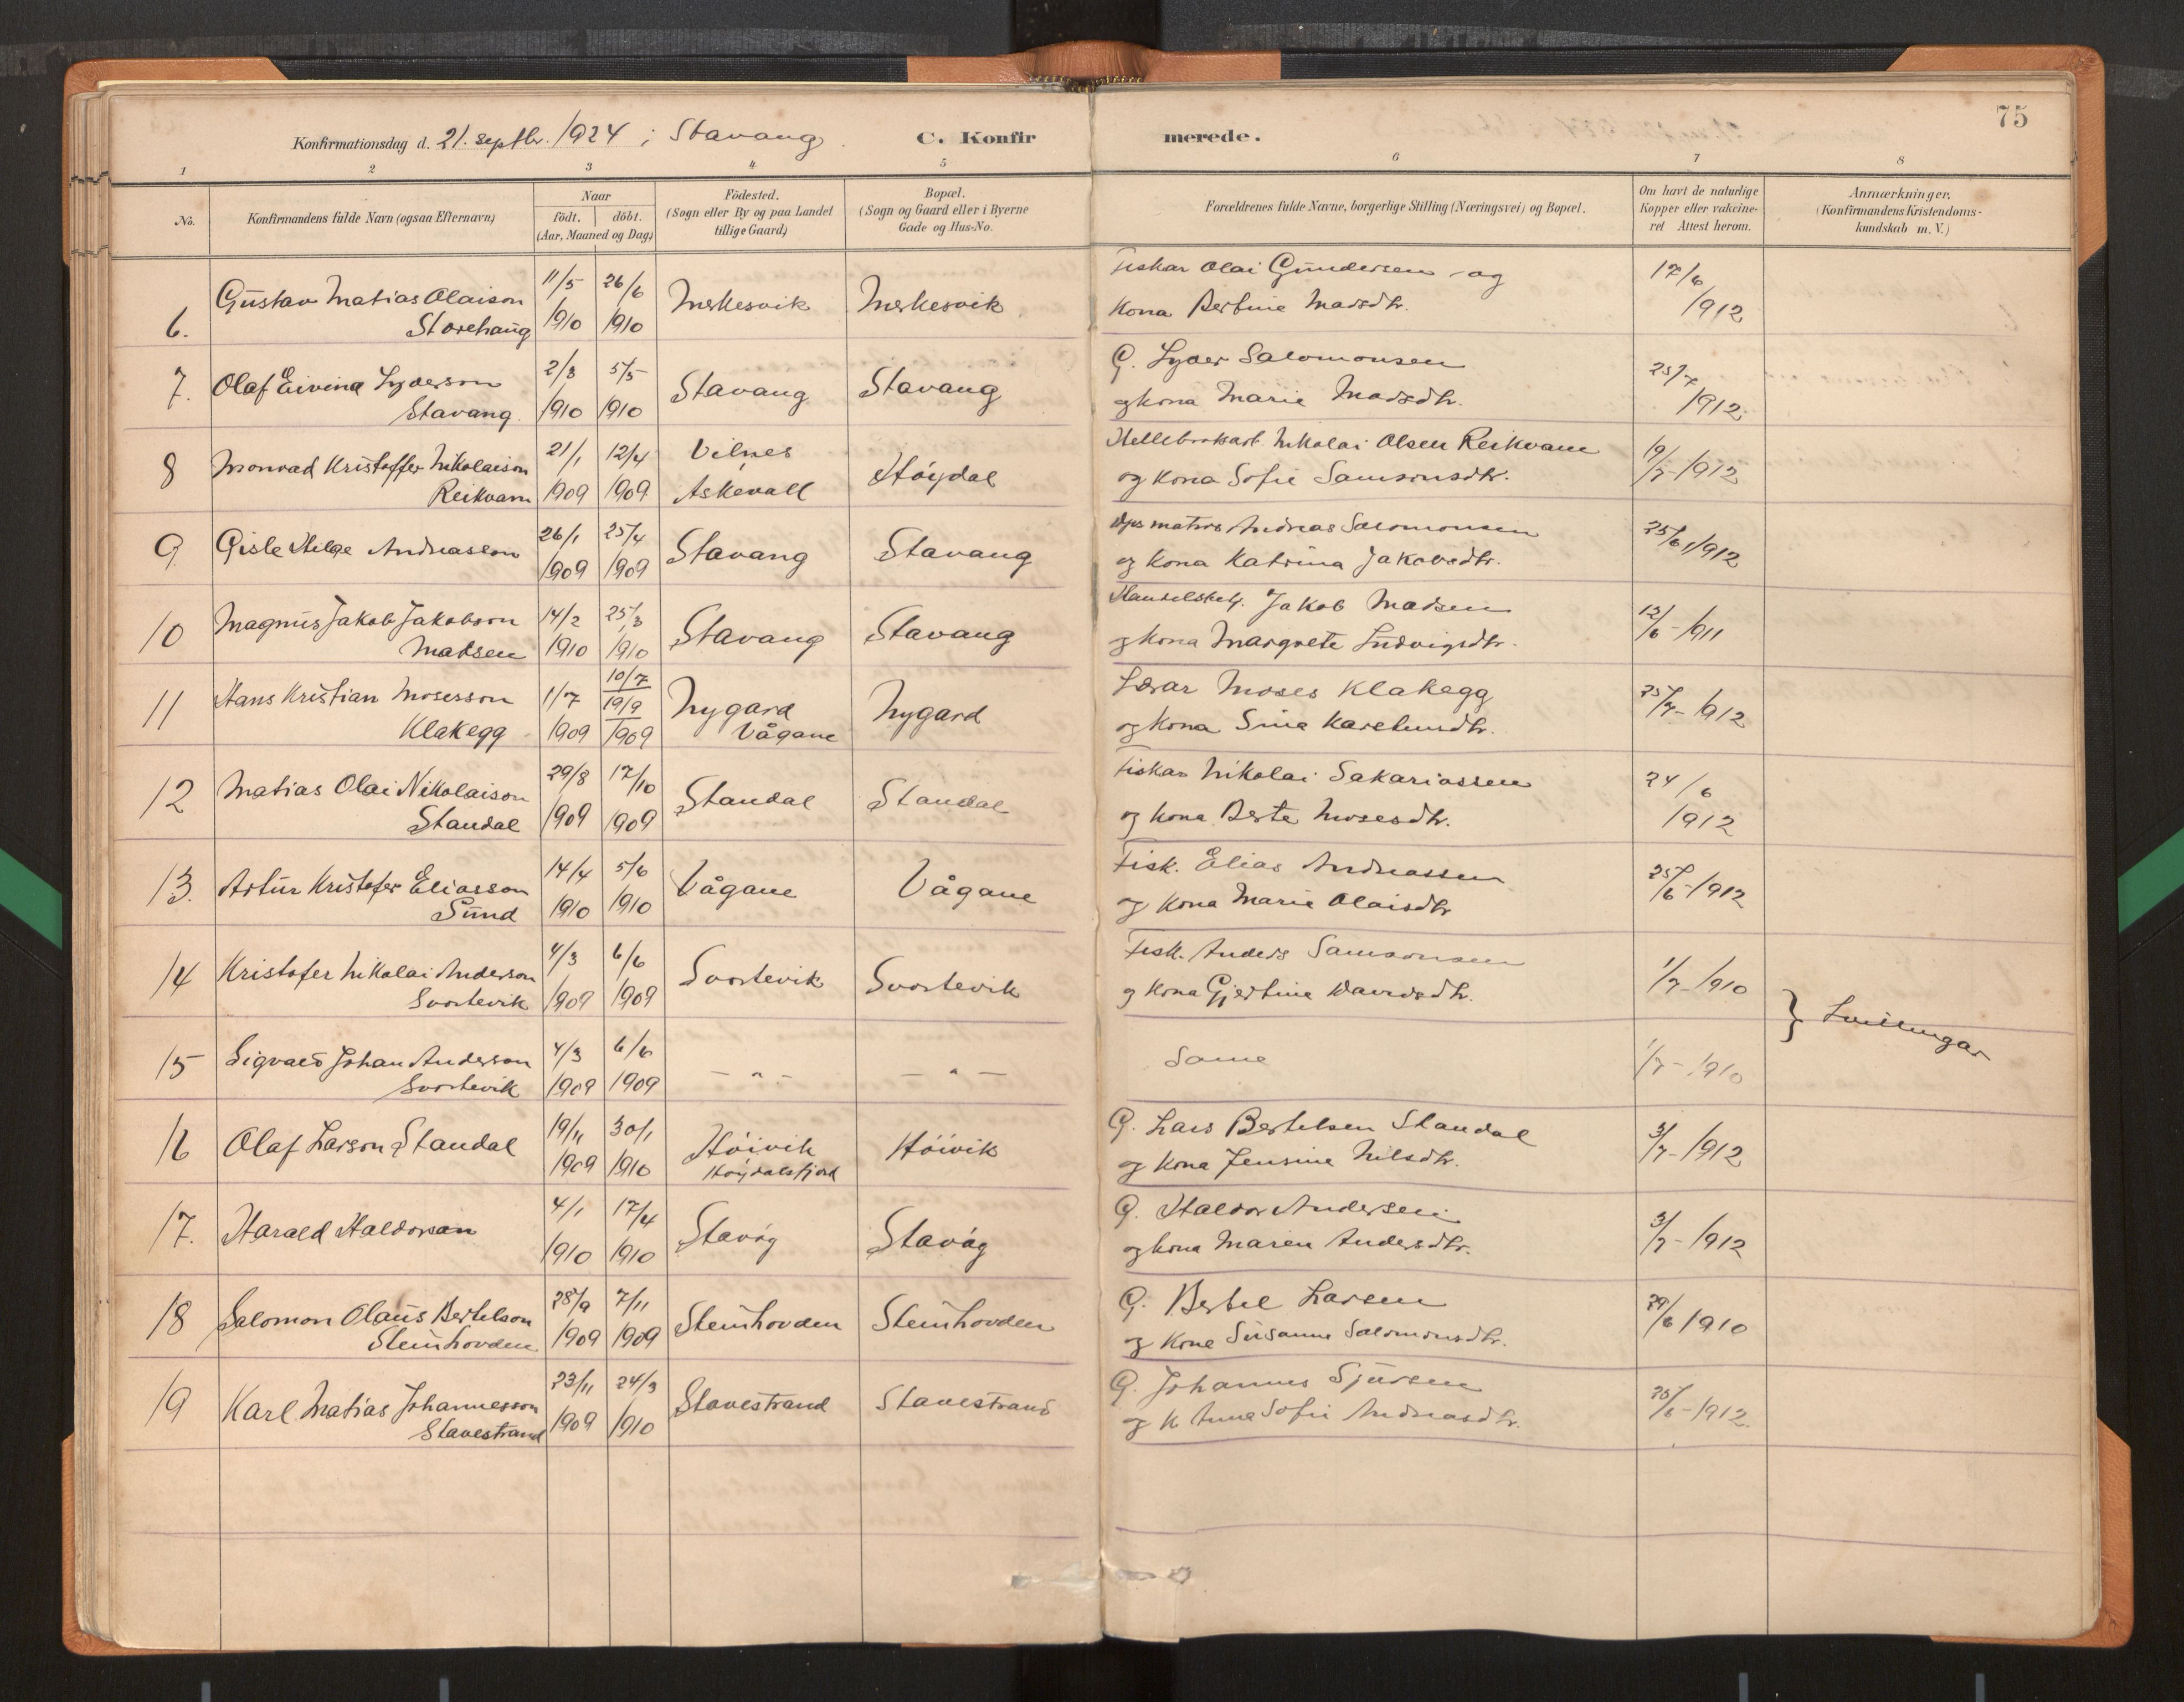 75
Konfirmationsdag d. 21. septbr. 1924 i Stavang. C. Konfirmerede.
1 2 3 4 5 6 7 8
No. Konfirmandens fulde Navn (ogsaa Efternavn) Naar födt. döbt. (Aar, Maaned og Dag) Födested. (Sogn eller By og paa Landet tillige Gaard) Bopæl. (Sogn og Gaard eller i Byerne Gade og Hus-No. Forældrenes fulde Navne, borgerlige Stilling (Næringsvei) og Bopæl. Om havt de naturlige Kopper eller vakcineret Attest herom. Anmærkninger, (Konfirmandens Kristendomskundskab m. V.)
6. Gustav Matias Olaison 11/5 26/6 Merkesvik Merkesvik Fiskar Olai Gundersen og 17/6
Storehaug 1910 1910 Kona Bertine Madsdtr. 1912
7. Olaf Eivind Lyderson 2/3 5/5 Stavang Stavang G. Lyder Salomonsen 25/7
Stavang. 1910 1910 og kona Marie Madsdtr. 1912
8 Monrad Kristoffer Nikolaison 21/1 12/4 Vilnes Höydal Nikolai Olsen Reikvam 19/7-1912
Reikvam 1909 1909 Askevall og kona Sofie Samsonsdtr.
9 Gisle Helge Andreasson 26/1 25/4 Stavang Stavang Andreas Salomonsen 25/6 1912
1909 1909 og kona Katrina Jakobsdtr.
10 Magnus Jakob Jakobson 14/2 25/3 Stavang Stavang Handelsbetj. Jakob Madsen 12/6-1911
Madsen 1910 1910 og kona Margrete Ludvigsdtr.
11 Hans Kristian Mosesson 1/7 10/7 19/9 Nygard Nygard Lærar Moses Klakegg 25/7-1912
Klakegg 1909 1909 Vågane og kona Sina
12 Matias Olai Nikolaison 29/8 17/10 Standal Standal Fiskar Nikolai Sakariassen 24/6
Standal 1909 1909 og kona Berte Mosesdtr. 1912
13. Artur Kristofer Eliasson 14/4 5/6 Vågane Vågane Fisk. Elias Andreassen 25/6-1912
Sund 1910 1910 og kona Marie Olaisdtr
14 Kristofer Nikolai Anderson 4/3 6/6 Svortevik Svortevik Fisk. Anders Samsonsen 1/7-1910
Svortevik 1909 1909 og kona Gjertine Davidsdtr. } Tvillingar
15 Sigvald Johan Anderson 4/3 6/6 - " - - " - Same 1/7-1910
Svortevik 1909 1909
16 Olaf Larson Standal 19/11 30/1 Höivik Höivik G. Lars Bertelsen Standal 3/7-1912
1909 1910 Höydalsfjord og kona Jensine Nilsdtr.
17. Harald Haldorson 4/1 17/4 Stavög Stavåg G. Haldor Andersen 3/7-1912
1910 1910 og kona Maren Andersdtr.
18 Salomon Olaus Bertelson 28/9 7/11 Steinhovden Steinhovden G. Bertel Larsen 29/6 1910
Steinhovden 1909 1909 og kona Susanne Salomonsdtr.
19 Karl Matias Johannesson 23/11 24/3 Stavestrand Stavestrand G. Johannes Sjursen 25/6-1912.
Stavestrand 1909 1910 og K Anna Sofie Andreasdtr.